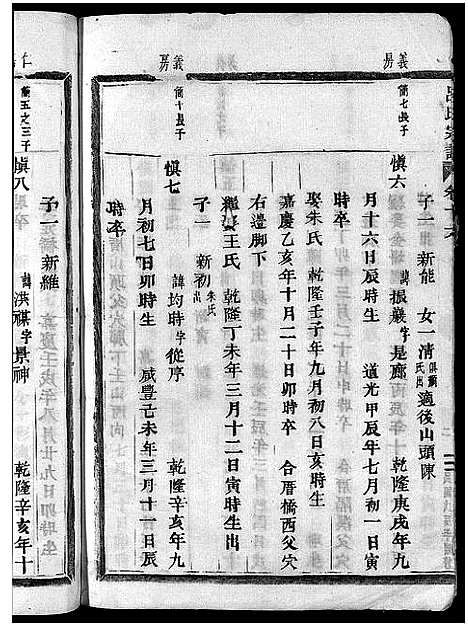 呂氏宗譜 卷十六
義房
簡七長子
慎六 諱振巖字是廊 乾隆庚戌年九
月十六日辰時生 道光甲辰年七月初一日寅
時卒
娶朱氏 乾隆壬子年九月初八日亥時生
嘉慶乙亥年十月二十日卯時卒 合厝橋西父穴
右邊脚下
繼娶王氏 乾隆丁未年三月十二日寅時生出
子二 新能 女一清俱蘭氏出適後山頭陳
子一 新初朱氏出
義房
簡十長子
慎七 諱均時字從序 乾隆辛亥年九
月初七日卯時生 咸豐己未年三月十一日辰
時卒
仁房
簡五之三子
子一 新維
慎八 諱洪禖字景神 乾隆辛亥年十